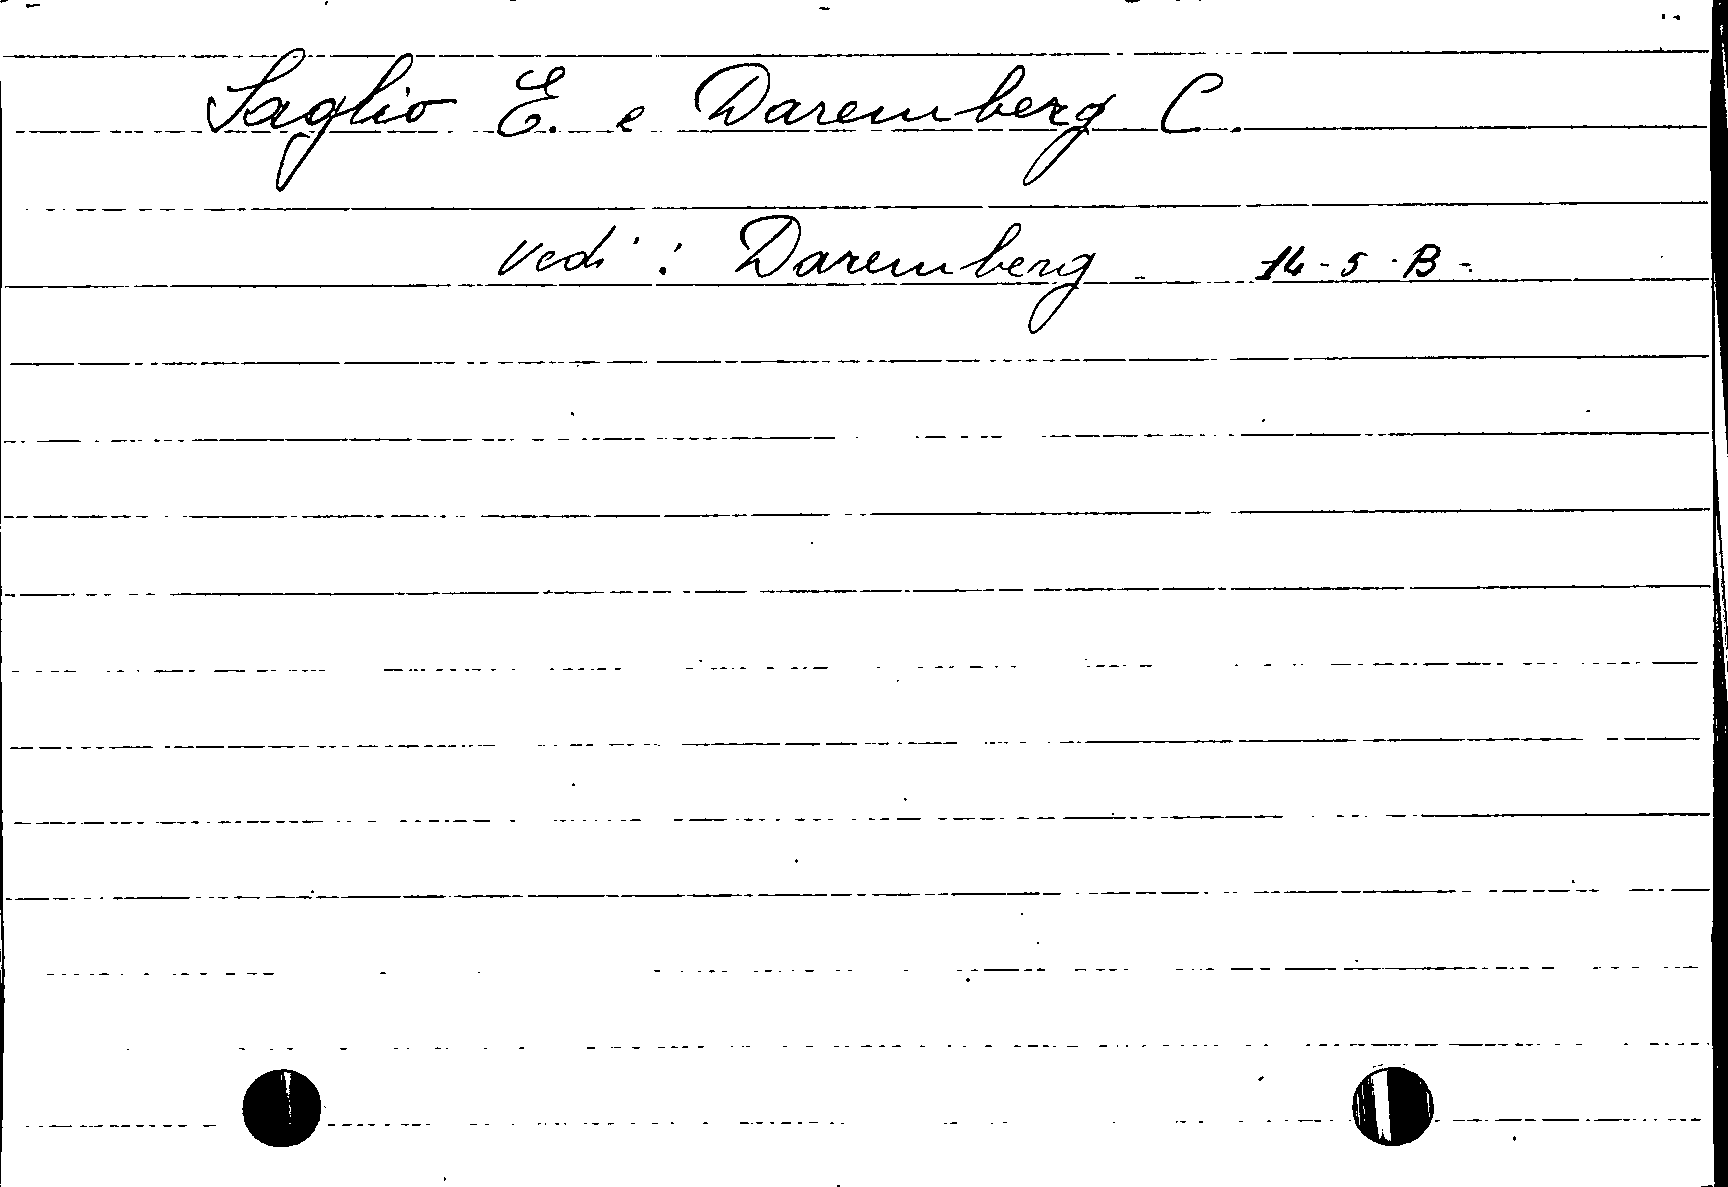 Saglio E. e Daremberg C.
Vedi: Daremberg - 14-5-B-